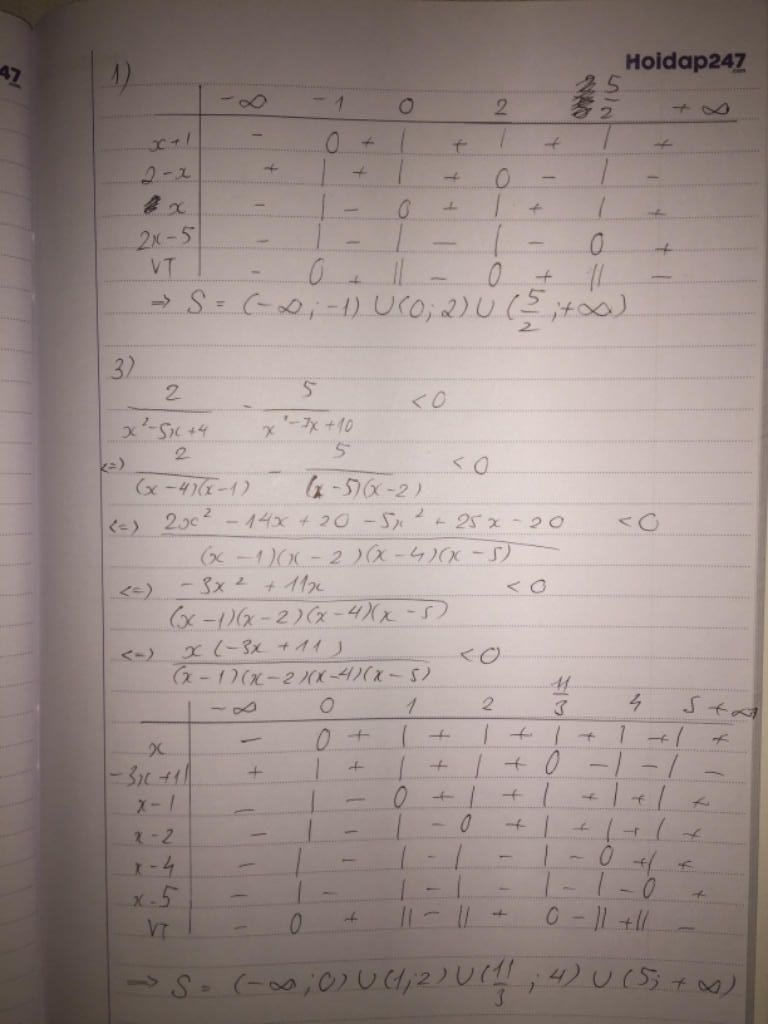 47
Hoidap247
.com
1)
-∞ -1 0 2 5/2 +∞
x+1 - 0 + | + | + | +
2-x + | + | + 0 - | -
x - | - 0 + | + | +
2x-5 - | - | - | - 0 +
VT - 0 + || - 0 + || -
=> S = (-∞;-1) ∪ (0;2) ∪ (5/2;+∞)
3)
2/(x²-5x+4) - 5/(x²-7x+10) <0
<=> 2/((x-4)(x-1)) - 5/((x-5)(x-2)) <0
<=> (2x²-14x+20-5x²+25x-20)/((x-1)(x-2)(x-4)(x-5)) <0
<=> (-3x²+11x)/((x-1)(x-2)(x-4)(x-5)) <0
<=> x(-3x+11)/((x-1)(x-2)(x-4)(x-5)) <0
-∞ 0 1 2 11/3 4 5 +∞
x - 0 + | + | + | + | + | +
-3x+11 + | + | + | + 0 - | - | -
x-1 - | - 0 + | + | + | + | +
x-2 - | - | - 0 + | + | + | +
x-4 - | - | - | - | - 0 + | +
x-5 - | - | - | - | - | - 0 +
VT - 0 + || - || + 0 - || + || -
=> S = (-∞;0) ∪ (1;2) ∪ (11/3;4) ∪ (5;+∞)